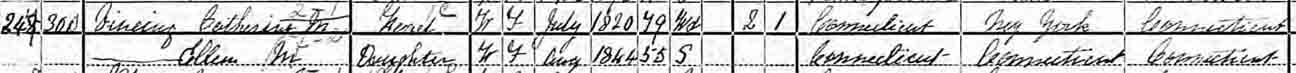 300 Vincing Catherine M Head W F July 1820 79 Wd 2 1 Connecticut New York Connecticut
Ellen M Daughter W F Aug 1844 55 S Connecticut Connecticut Connecticut